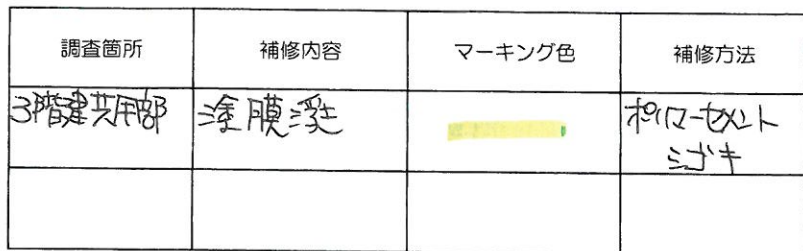 調査箇所 補修内容 マーキング色 補修方法
3階建共用部 塗膜浮き ポリマーセメント
シゴキ